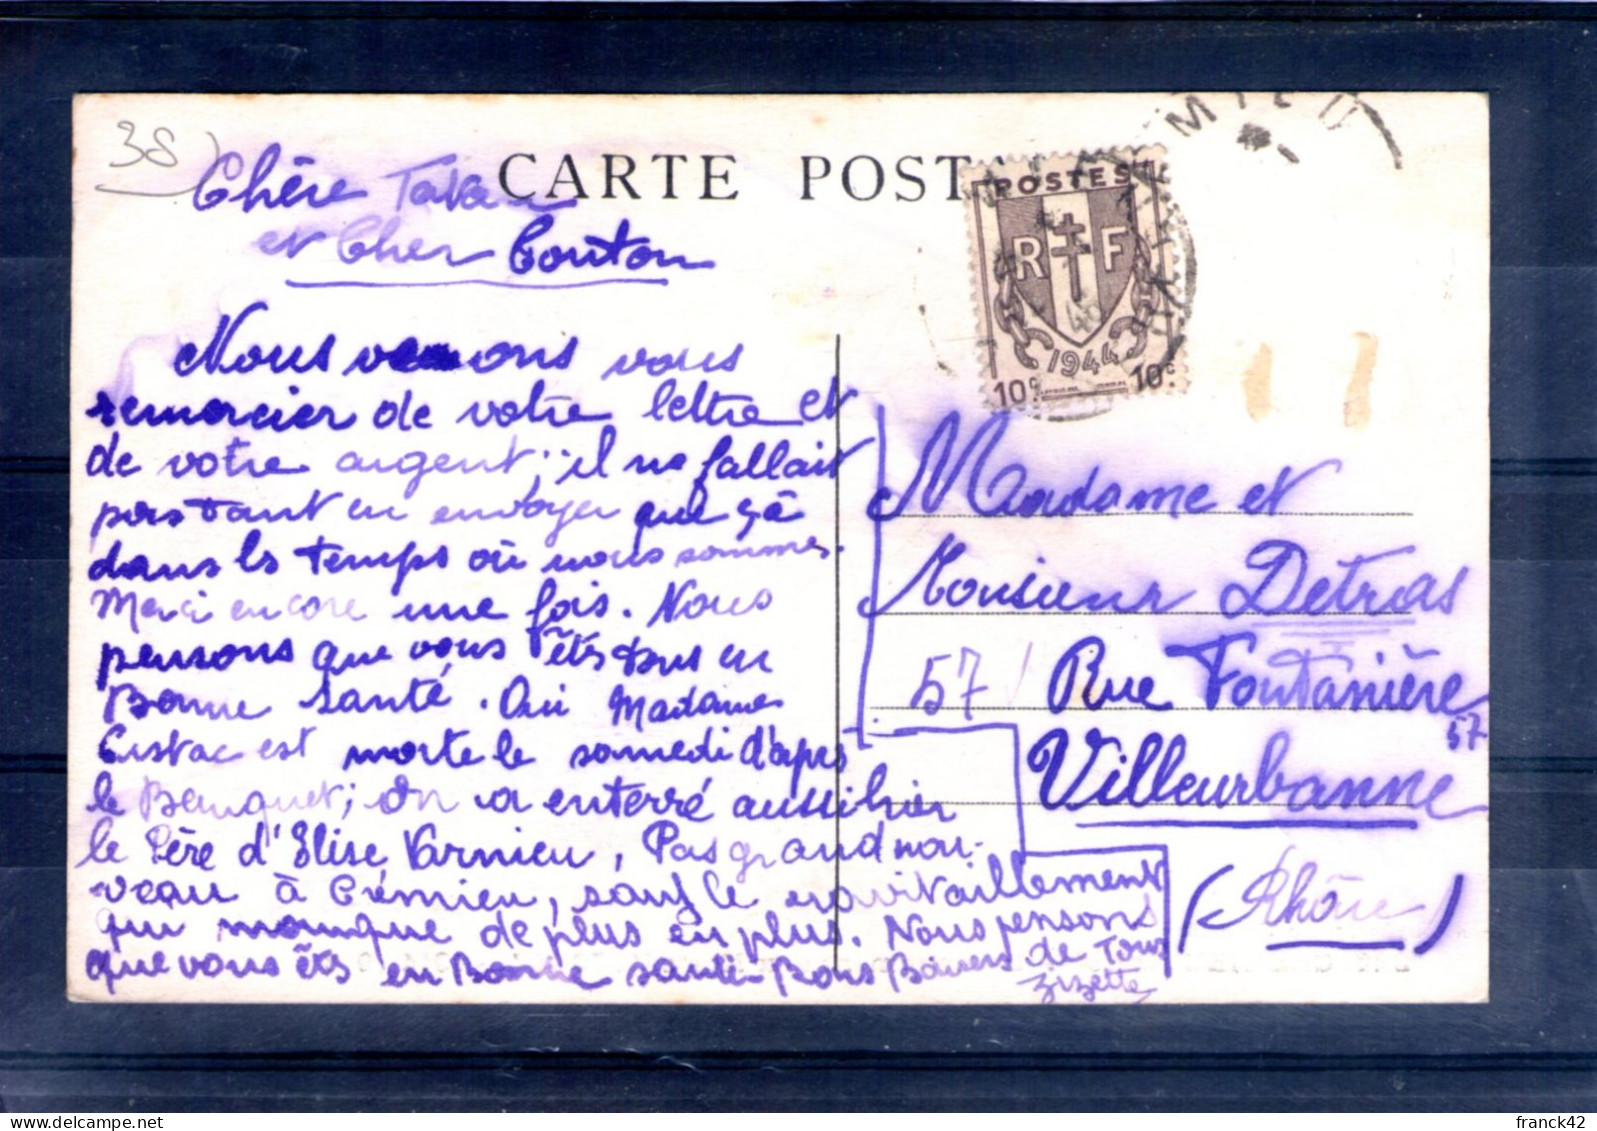 38
CARTE POSTALE
Chère Tata
et Cher Tonton
POSTES
R F
1944
10c 10c
Nous venons vous
remercier de votre lettre et
de votre argent ; il ne fallait
pas tant en envoyer que çà
dans le temps où nous sommes.
Merci encore une fois. Nous
pensons que vous êtes tous en
Bonne santé. Oui Madame
est morte le samedi d'après
le Banquet ; On a enterré aussi hier
le Père d'Elise Varnieu, Pas grand nou-
veau à Crémieu, sauf le ravitaillement
qui manque de plus en plus. Nous pensons
que vous êtes en Bonne santé - Bons Baisers de Tous
Zizette
Madame et
Monsieur Detras
57 Rue Fontanière
57
Villeurbanne
(Rhône)
franck42